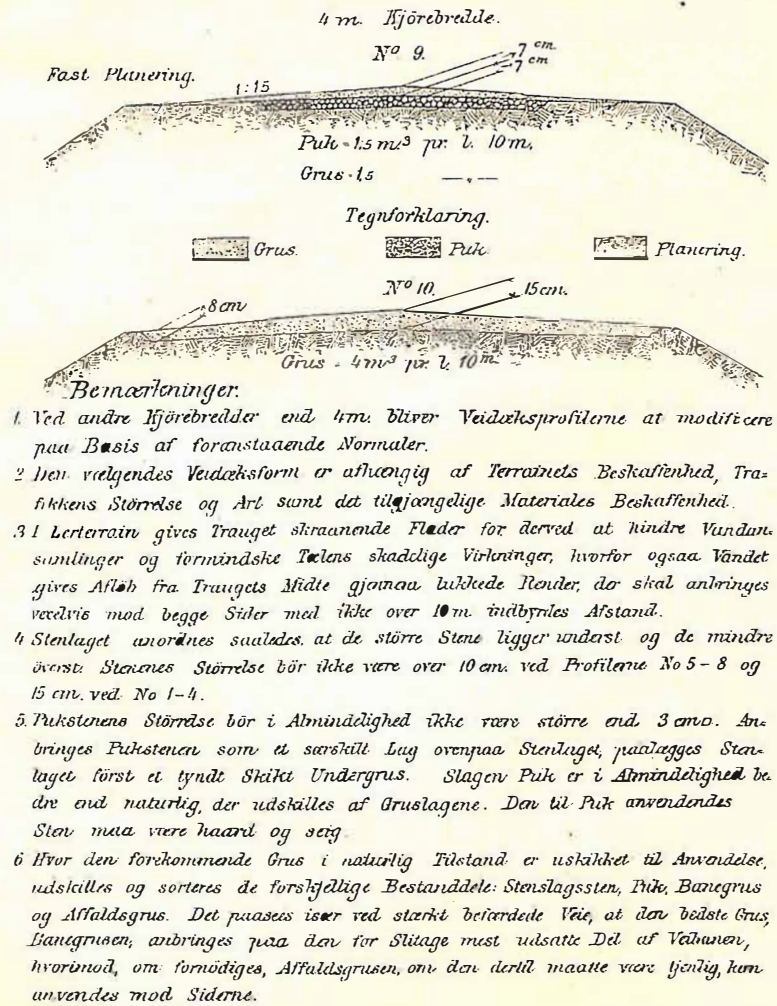 4 m. Kjörebredde.
No 9.
7 cm
7 cm
Fast Planering.
1:15
Puk = 1.5 m3 pr. l. 10 m.
Grus = 1.5 —„—
Tegnforklaring.
Grus. Puk. Planering.
No 10.
15 cm.
8 cm
Grus = 4 m3 pr. l. 10 m.
Bemærkninger.
1. Ved andre Kjörebredder end 4m. bliver Veidæksprofilerne at modificere
paa Basis af foranstaaende Normaler.
2 Den vælgendes Veidæksform er afhængig af Terrainets Beskaffenhed, Tra=
fikkens Störrelse og Art samt det tilgjængelige Materiales Beskaffenhed.
3 I Lerterrain gives Trauget skraanende Flader for derved at hindre Vandan=
samlinger og formindske Tælens skadelige Virkninger, hvorfor ogsaa Vandet
gives Aflöb fra Traugets Midte gjennem lukkede Render, der skal anbringes
vexelvis mod begge Sider med ikke over 10 m. indbyrdes Afstand.
4 Stenlaget anordnes saaledes, at de större Stene ligger underst og de mindre
överst. Stenenes Störrelse bör ikke være over 10 cm. ved Profilerne No 5-8 og
15 cm. ved No 1-4.
5. Pukstenens Störrelse bör i Almindelighed ikke være större end 3 cm. An=
bringes Pukstenen som et særskilt Lag ovenpaa Stenlaget, paalægges Sten=
laget först et tyndt Skikt Undergrus. Slagen Puk er i Almindelighed be
dre end naturlig, der udskilles af Gruslagene. Den til Puk anvendendes
Sten maa være haard og seig
6 Hvor den forekommende Grus i naturlig Tilstand er uskikket til Anvendelse,
udskilles og sorteres de forskjellige Bestanddele: Stenslagssten, Puk, Banegrus
og Affaldsgrus. Det paasees især ved stærkt befærdede Veie, at den bedste Grus,
Banegrusen, anbringes paa den for Slitage mest udsatte Del af Veibanen,
hvorimod, om fornödiges, Affaldsgrusen, om den dertil maatte være tjenlig, kan
anvendes mod Siderne.